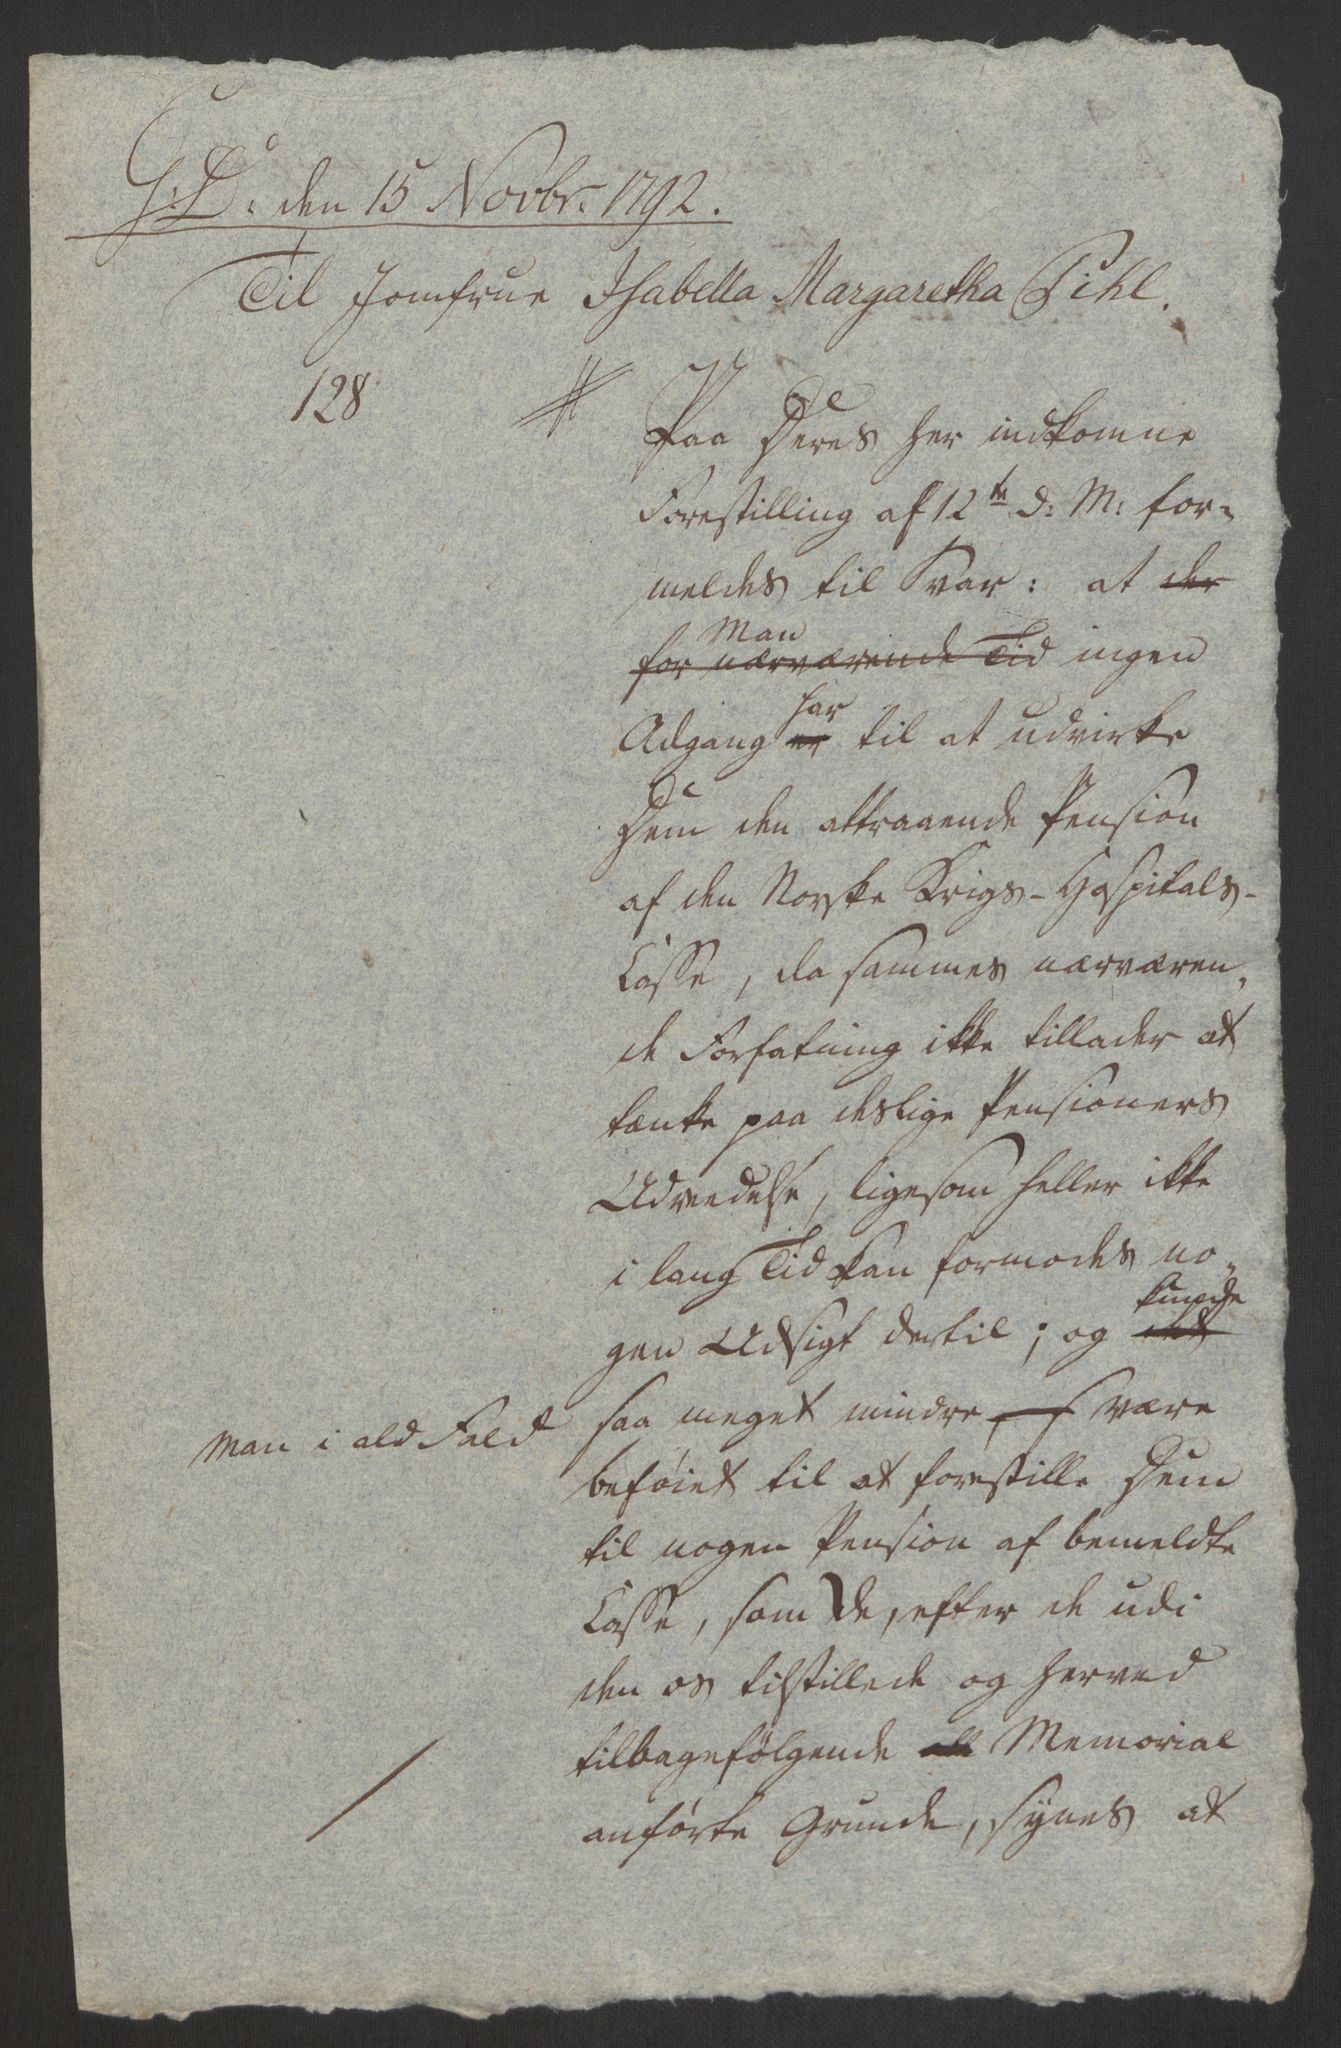 G: D: den 15 Novbr: 1792.
Til Jomfrue Isabella Margaretha Pihl.
128
Paa Deres her indkomne
Forestilling af 12te d: M: for-
meldes til Svar: at der
Man
for nærværende Tid ingen
har
Adgang er til at udvirke
Dem den attraaende Pension
af den Norske Krigs-Hospitals-
Casse, da sammes nærværen-
de Forfatning ikke tillader at
tænke paa deslige Pensioners
Udreedelse, ligesom heller ikke
i lang Tid kan formodes no-
gen Udsigt dertil; og
kunde
man i ald Fald
saa meget mindre være
beføiet til at forestille Dem
til nogen Pension af bemeldte
Casse, som De, efter de udi
den os tilstillede og herved
tilbagefølgende Memorial
anførte Grunde, synes at